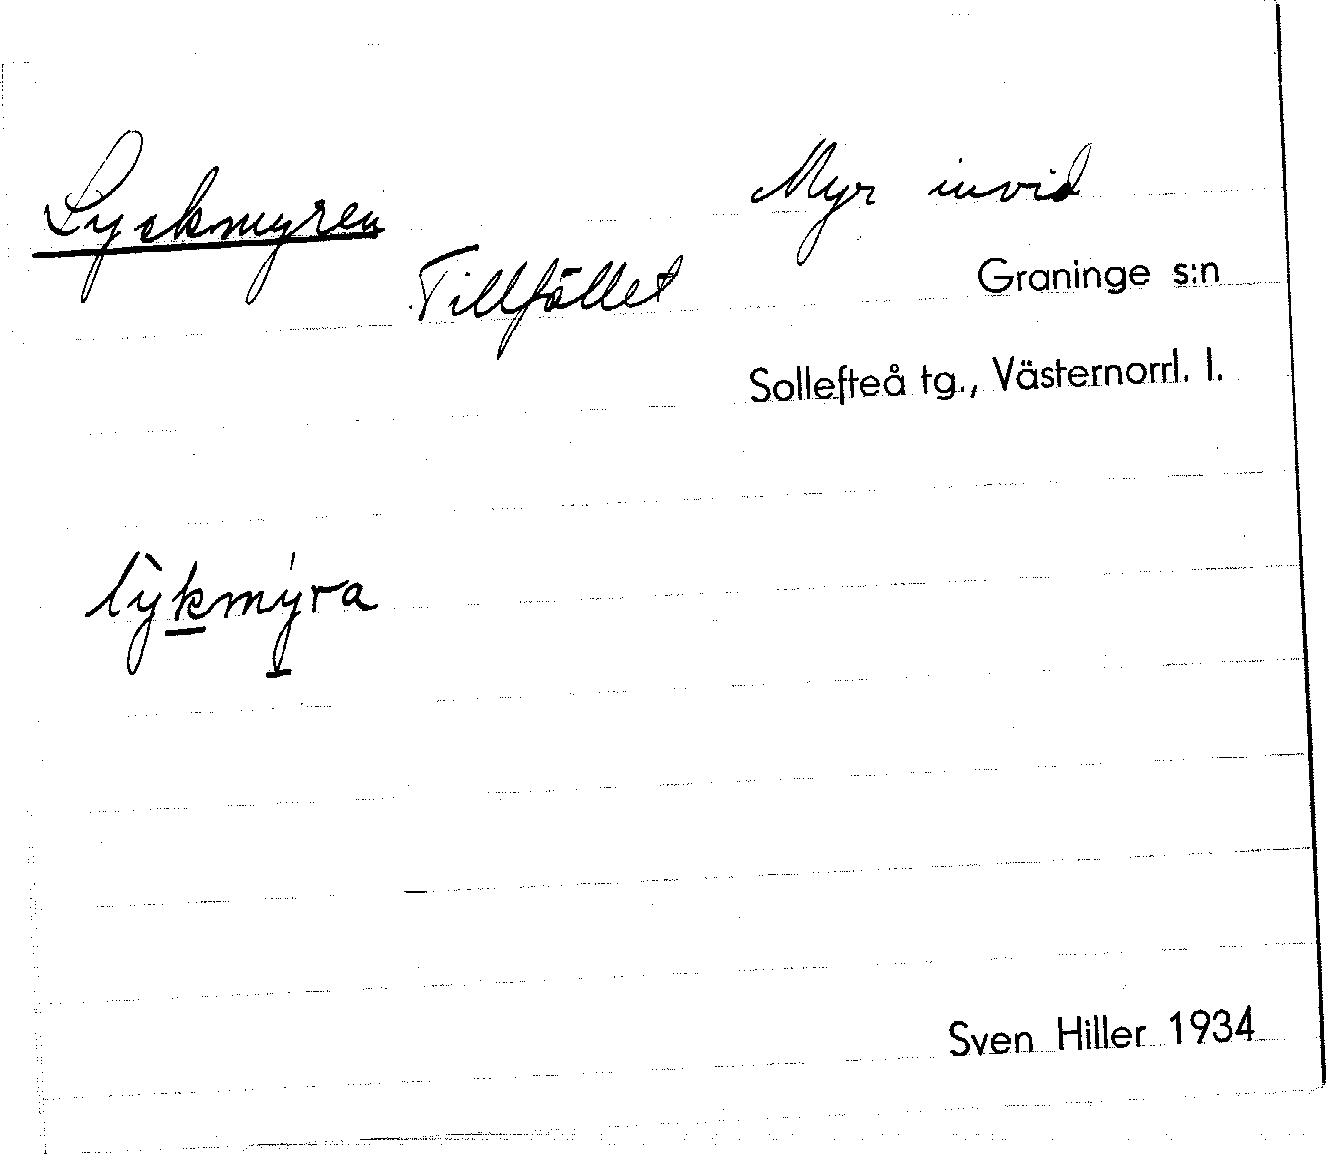 Lyckmyren Myr invid
Tillfället Graninge s:n
Sollefteå tg., Västernorrl. l.
lỳkmýra
Sven Hiller 1934